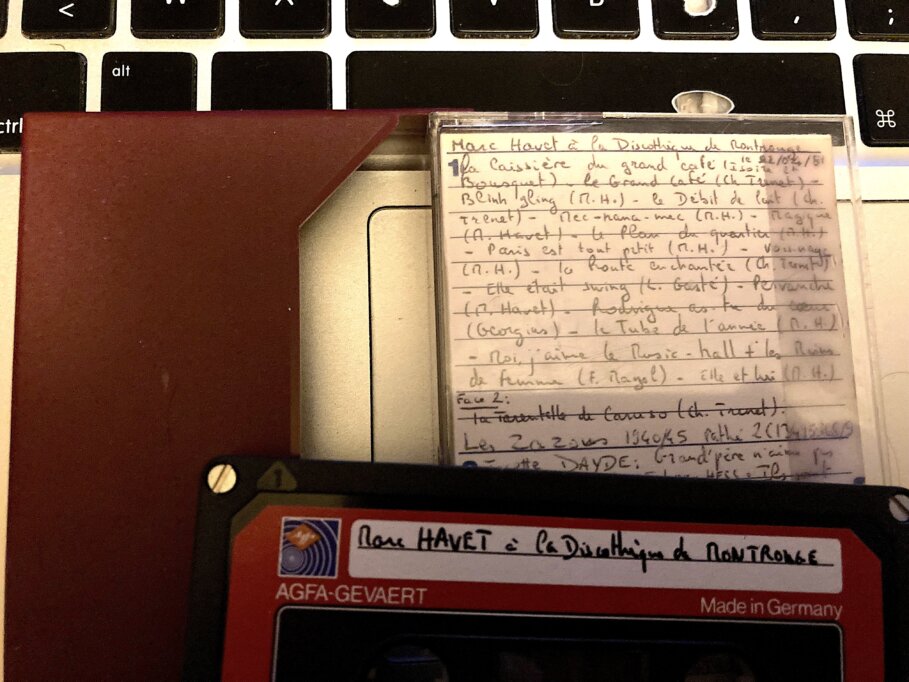 alt
ctrl
⌘
Marc Havet à la Discothèque de Montrouge
1 La Caissière du grand café (
Bousquet) - Le Grand Café (Ch. Trenet) -
Blinh'gling (M.H.) - Le Débit de lait (Ch.
Trenet) - Mec-nana-mec (M.H.) -
(M. Havet) - Le Plan du quartier (M.H.)
- Paris est tout petit (M.H.) -
(M.H.) - La Route enchantée (Ch. Trenet)
- Elle était swing (L. Gasté) - Pervenche
(M. Havet) - Rodrigue as-tu du cœur
(Georgius) - Le Tube de l'année (M.H.)
- Moi, j'aime le Music-hall + Les Mains
de femme (F. Mayol) - Elle et lui (M.H.)
Face 2:
La Tarentelle de Caruso (Ch. Trenet).
Les Zazous 1940/45 Pathé 2C
DAYDE: Grand'père n'aime pas
1
Agfa
Marc HAVET à la Discothèque de MONTROUGE
AGFA-GEVAERT
Made in Germany